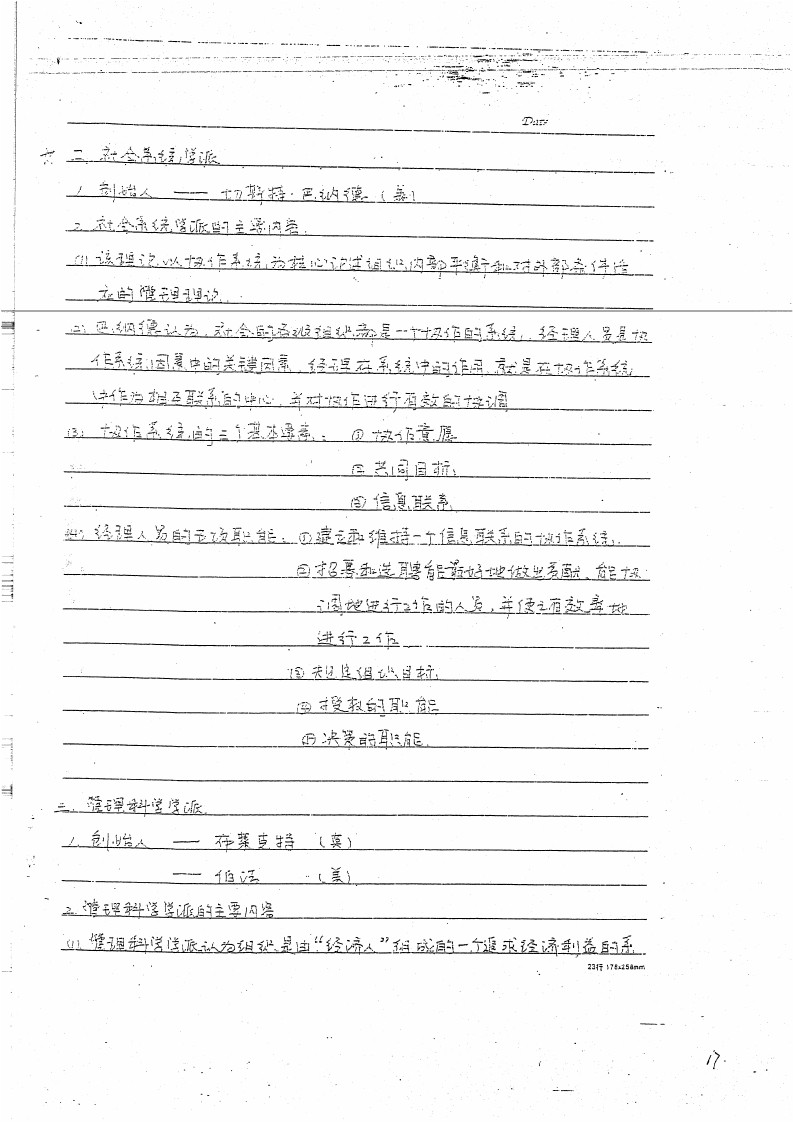 Date
☆ 二. 社会系统学派
1. 创始人 —— 切斯特·巴纳德 (美)
2. 社会系统学派的主要内容.
(1) 该理论以协作系统为核心论述组织内部平衡和对外部条件适
应的管理理论.
(2) 巴纳德认为, 社会的各级组织都是一个协作的系统, 经理人员是协
作系统因素中的关键因素, 经理在系统中的作用, 就是在协作系统
中作为相互联系的中心, 并对协作进行有效的协调
(3) 协作系统的三个基本要素: ① 协作意愿
② 共同目标;
③ 信息联系
(4) 经理人员的五项职能: ①建立和维持一个信息联系的协作系统;
②招募和选聘能最好地做出贡献, 能协
调地进行工作的人员, 并使之有效率地
进行工作
③ 规定组织目标;
④ 授权的职能
⑤ 决策的职能.
三. 管理科学学派
1. 创始人 —— 布莱克特 (英)
—— 伯法 (美)
2. 管理科学学派的主要内容
(1) 管理科学学派认为组织是由“经济人”组成的一个追求经济利益的系
23行 178x258mm
17.